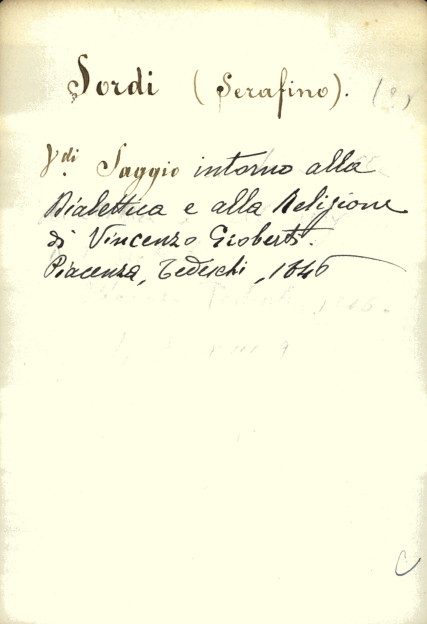 Sordi (Serafino). (?)
V.di Saggio intorno alla
Dialettica e alla Religione
di Vincenzo Gioberti.
Piacenza, Tedeschi, 1846